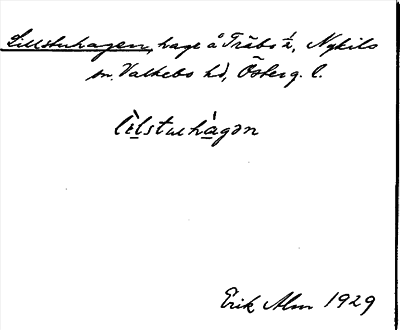 Lillstuhagen, hage å Träbo ½, Nykils
sn. Valkebo hd, Österg. l.
lìlstuehágən
Erik Alm 1929